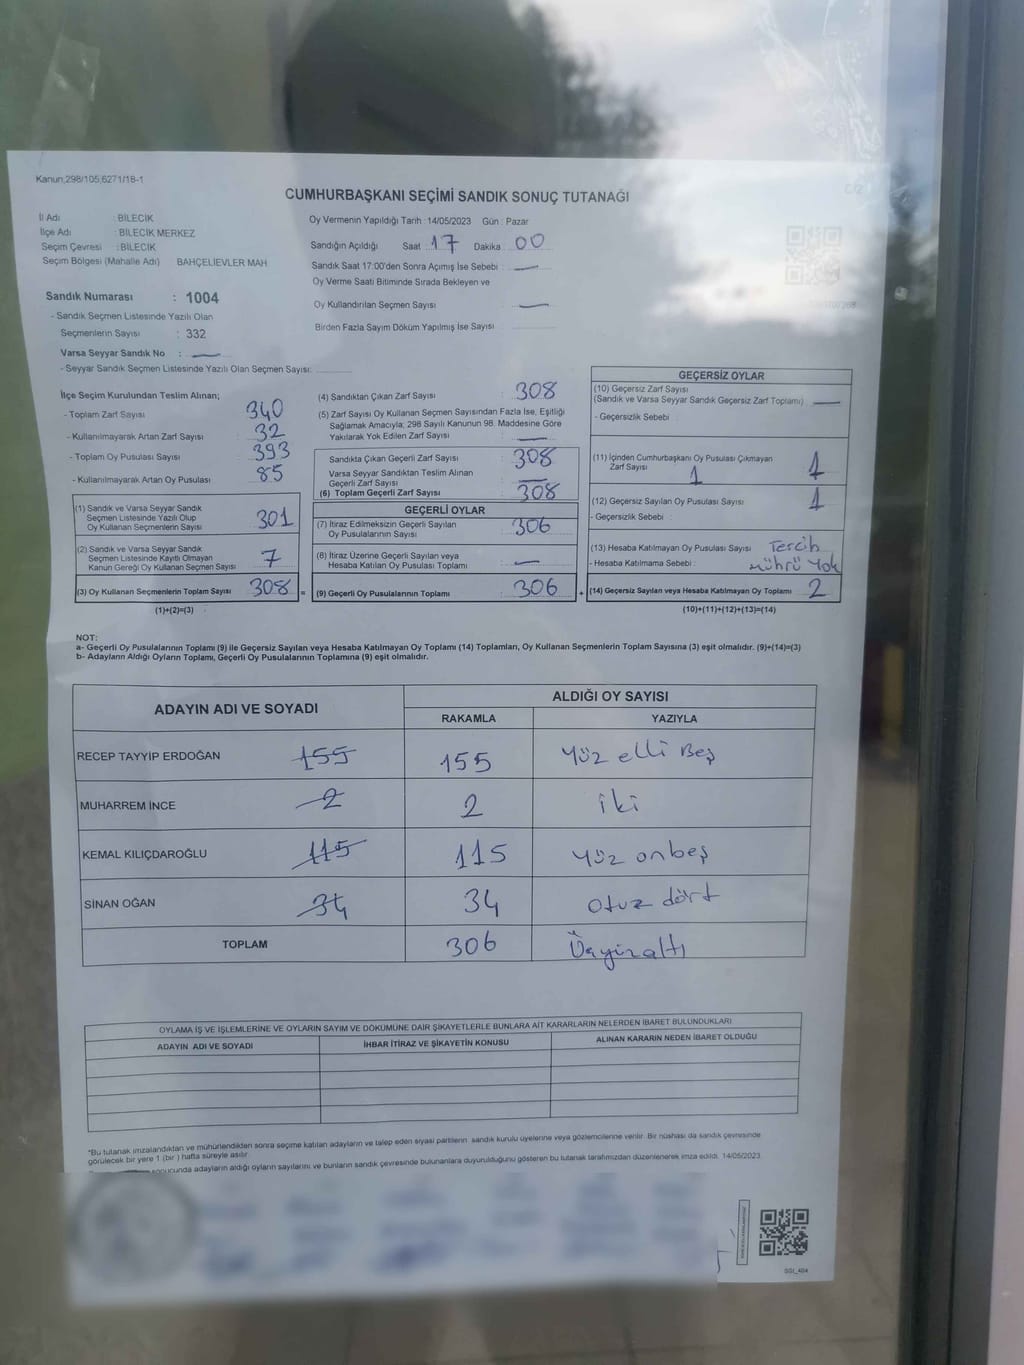 Kanun,298/105,6271/18-1
CUMHURBAŞKANI SEÇİMİ SANDIK SONUÇ TUTANAĞI
C/2
İl Adı : BİLECİK
İlçe Adı : BİLECİK MERKEZ
Seçim Çevresi : BİLECİK
Seçim Bölgesi (Mahalle Adı) BAHÇELİEVLER MAH
Oy Vermenin Yapıldığı Tarih : 14/05/2023 Gün : Pazar
Sandığın Açıldığı Saat 17 Dakika 00
Sandık Saat 17:00'den Sonra Açılmış İse Sebebi : —
Oy Verme Saati Bitiminde Sırada Bekleyen ve
Oy Kullandırılan Seçmen Sayısı : —
Birden Fazla Sayım Döküm Yapılmış İse Sayısı
Sandık Numarası : 1004
- Sandık Seçmen Listesinde Yazılı Olan
Seçmenlerin Sayısı : 332
Varsa Seyyar Sandık No : —
- Seyyar Sandık Seçmen Listesinde Yazılı Olan Seçmen Sayısı:
İlçe Seçim Kurulundan Teslim Alınan;
- Toplam Zarf Sayısı : 340
- Kullanılmayarak Artan Zarf Sayısı : 32
- Toplam Oy Pusulası Sayısı : 393
- Kullanılmayarak Artan Oy Pusulası : 85
(1) Sandık ve Varsa Seyyar Sandık
Seçmen Listesinde Yazılı Olup
Oy Kullanan Seçmenlerin Sayısı 301
(2) Sandık ve Varsa Seyyar Sandık
Seçmen Listesinde Kayıtlı Olmayan
Kanun Gereği Oy Kullanan Seçmen Sayısı 7
(3) Oy Kullanan Seçmenlerin Toplam Sayısı 308 =
(1)+(2)=(3)
(4) Sandıktan Çıkan Zarf Sayısı : 308
(5) Zarf Sayısı Oy Kullanan Seçmen Sayısından Fazla İse, Eşitliği
Sağlamak Amacıyla; 298 Sayılı Kanunun 98. Maddesine Göre
Yakılarak Yok Edilen Zarf Sayısı : —
Sandıkta Çıkan Geçerli Zarf Sayısı : 308
Varsa Seyyar Sandıktan Teslim Alınan
Geçerli Zarf Sayısı : —
(6) Toplam Geçerli Zarf Sayısı : 308
GEÇERLİ OYLAR
(7) İtiraz Edilmeksizin Geçerli Sayılan
Oy Pusulasının Sayısı : 306
(8) İtiraz Üzerine Geçerli Sayılan veya
Hesaba Katılan Oy Pusulası Toplamı : —
(9) Geçerli Oy Pusulalarının Toplamı : 306 +
GEÇERSİZ OYLAR
(10) Geçersiz Zarf Sayısı
(Sandık ve Varsa Seyyar Sandık Geçersiz Zarf Toplamı) —
- Geçersizlik Sebebi :
(11) İçinden Cumhurbaşkanı Oy Pusulası Çıkmayan
Zarf Sayısı 1 1
(12) Geçersiz Sayılan Oy Pusulası Sayısı 1
- Geçersizlik Sebebi :
(13) Hesaba Katılmayan Oy Pusulası Sayısı Tercih
- Hesaba Katılmama Sebebi : mührü Yok
(14) Geçersiz Sayılan veya Hesaba Katılmayan Oy Toplamı 2
(10)+(11)+(12)+(13)=(14)
NOT:
a- Geçerli Oy Pusulalarının Toplamı (9) ile Geçersiz Sayılan veya Hesaba Katılmayan Oy Toplamı (14) Toplamları, Oy Kullanan Seçmenlerin Toplam Sayısına (3) eşit olmalıdır. (9)+(14)=(3)
b- Adayların Aldığı Oyların Toplamı, Geçerli Oy Pusulalarının Toplamına (9) eşit olmalıdır.
ADAYIN ADI VE SOYADI
ALDIĞI OY SAYISI
RAKAMLA YAZIYLA
RECEP TAYYİP ERDOĞAN 155 155 Yüz elli Beş
MUHARREM İNCE 2 2 iki
KEMAL KILIÇDAROĞLU 115 115 Yüz onbeş
SİNAN OĞAN 34 34 Otuz dört
TOPLAM 306 Üçyüzaltı
OYLAMA İŞ VE İŞLEMLERİNE VE OYLARIN SAYIM VE DÖKÜMÜNE DAİR ŞİKAYETLERLE BUNLARA AİT KARARLARIN NELERDEN İBARET BULUNDUKLARI
ADAYIN ADI VE SOYADI İHBAR İTİRAZ VE ŞİKAYETİN KONUSU ALINAN KARARIN NEDEN İBARET OLDUĞU
*Bu tutanak imzalandıktan ve mühürlendikten sonra seçime katılan adayların ve talep eden siyasi partilerin sandık kurulu üyelerine veya gözlemcilerine verilir. Bir nüshası da sandık çevresinde
görülecek bir yere 1 (bir ) hafta süreyle asılır.
sonucunda adayların aldığı oyların sayılarını ve bunların sandık çevresinde bulunanlara duyurulduğunu gösteren bu tutanak tarafımızdan düzenlenerek imza edildi. 14/05/2023